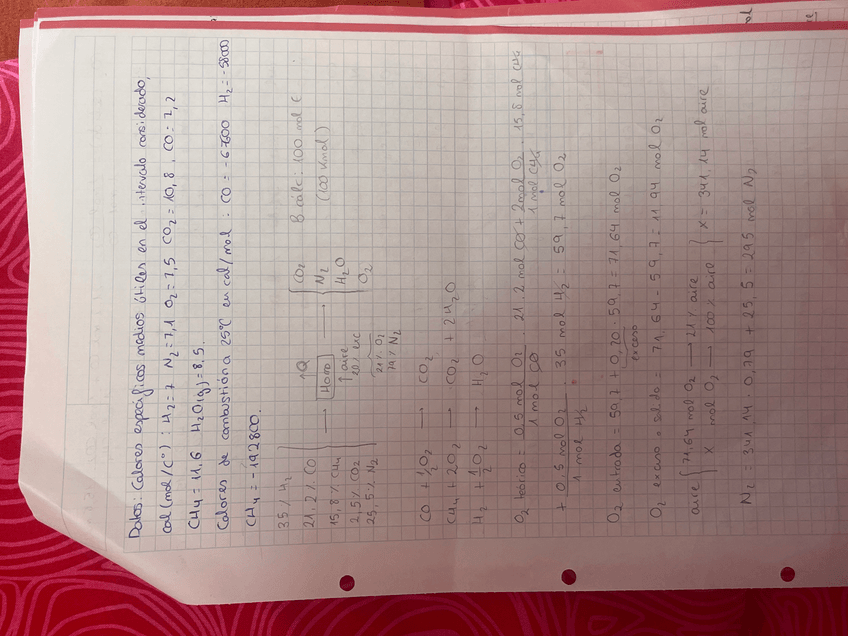 Datos: Calores específicos medios útiles en el intervalo considerado,
cal(mol/C°): H₂=7 N₂=7,1 O₂=7,5 CO₂=10,8, CO=7,2
CH₄=11,6 H₂O(g)=8,5.
Calores de combustión a 25°C en cal/mol: CO=-67600 H₂=-5800
CH₄=-192800.
35% H₂
21,2% CO
15,8% CH₄
2,5% CO₂
25,5% N₂
↑Q
Horno
↑ aire
20% exc
21% O₂
79% N₂
CO₂
N₂
H₂O
O₂
B cálc: 100 mol c
(100 Kmol)
CO + ½O₂ → CO₂
CH₄ + 2O₂ → CO₂ + 2H₂O
H₂ + ½O₂ → H₂O
O₂ teórico = 0,5 mol O₂ / 1 mol CO · 21,2 mol CO + 2 mol O₂ / 1 mol CH₄ · 15,8 mol CH₄
+ 0,5 mol O₂ / 1 mol H₂ · 35 mol H₂ = 59,7 mol O₂
O₂ entrada = 59,7 + 0,20 · 59,7 = 71,64 mol O₂
exceso
O₂ exceso = salida = 71,64 - 59,7 = 11,94 mol O₂
aire { 71,64 mol O₂ → 21% aire
x mol O₂ → 100% aire } x = 341,14 mol aire
N₂ = 341,14 · 0,79 + 25,5 = 295 mol N₂